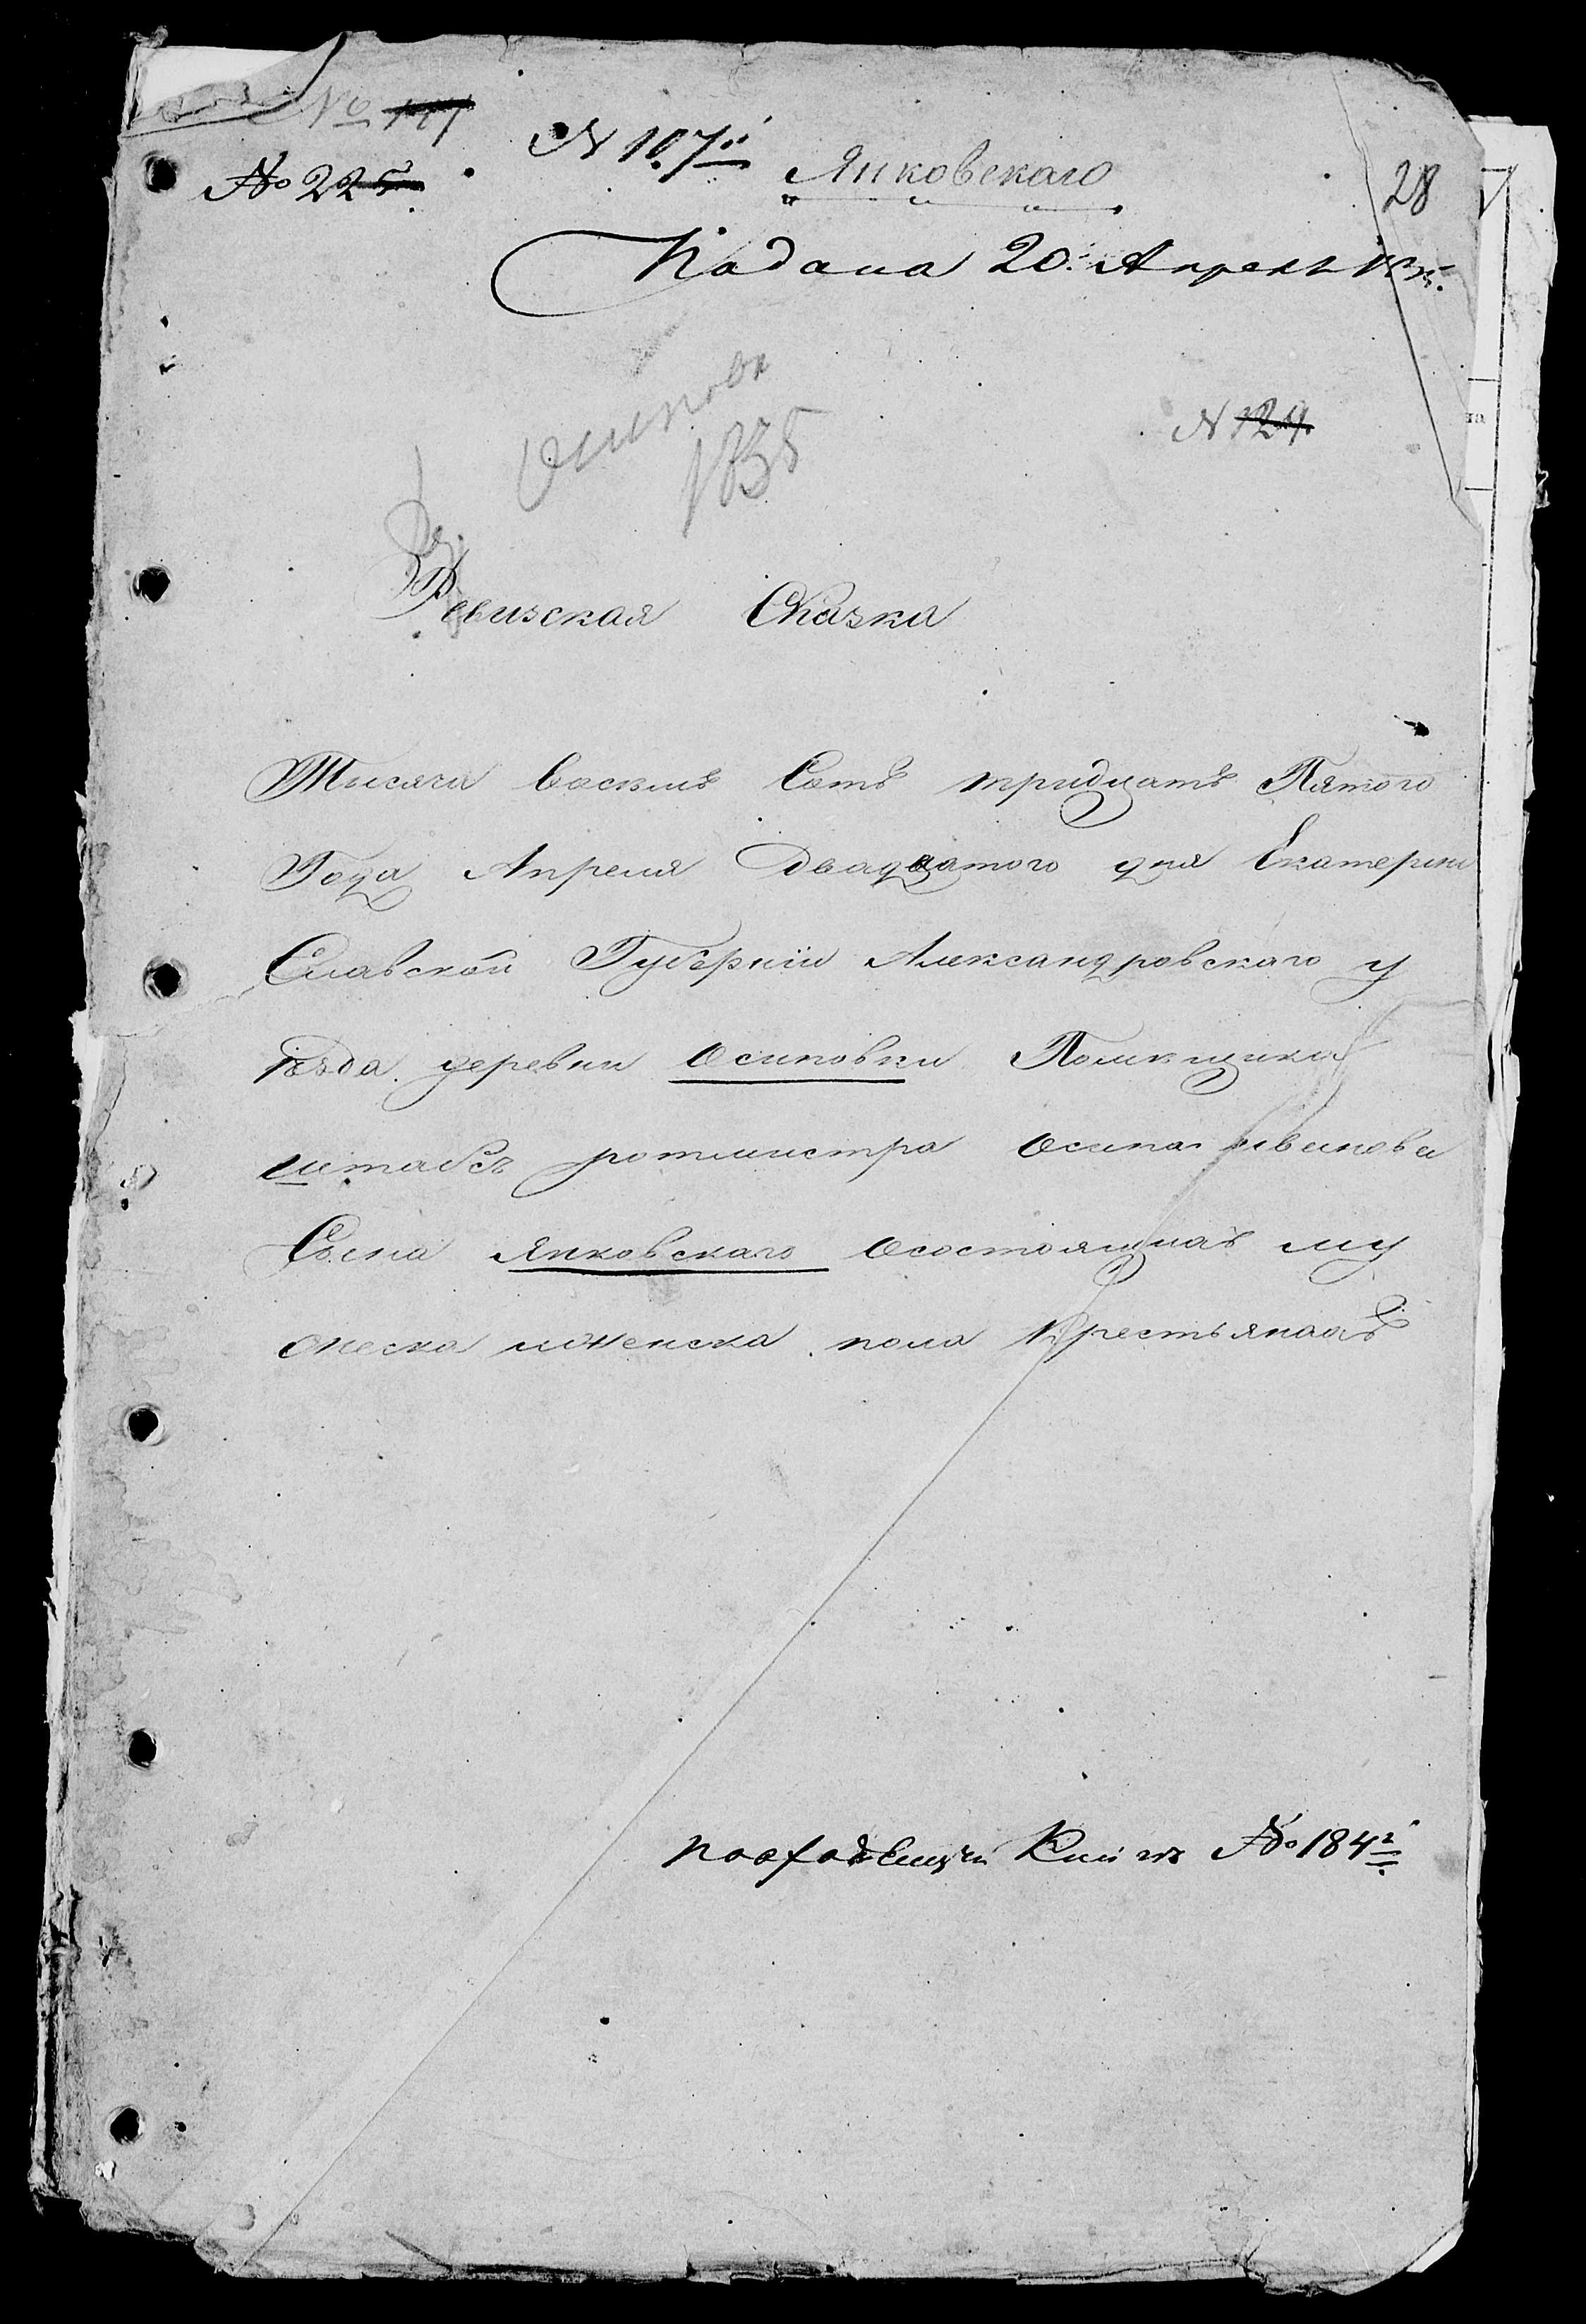 №
№ 225
N 107й
Янковскаго
28
Подана 20. Апреля
Осиповк
1835
N 129
Ревизская Сказка
Тысяча восемь Сотъ тридцать Пятого
Года Апреля двадцатого дня Екатерино
Славской Губернiи Александровскаго у
ѣзда деревни Осиповки Помещика
штабсъ ротмистра Осипа Иванова
Сына Янковскаго Осостоящихъ му
жеска иженска пола Крестьянахъ
Книгѣ № 184